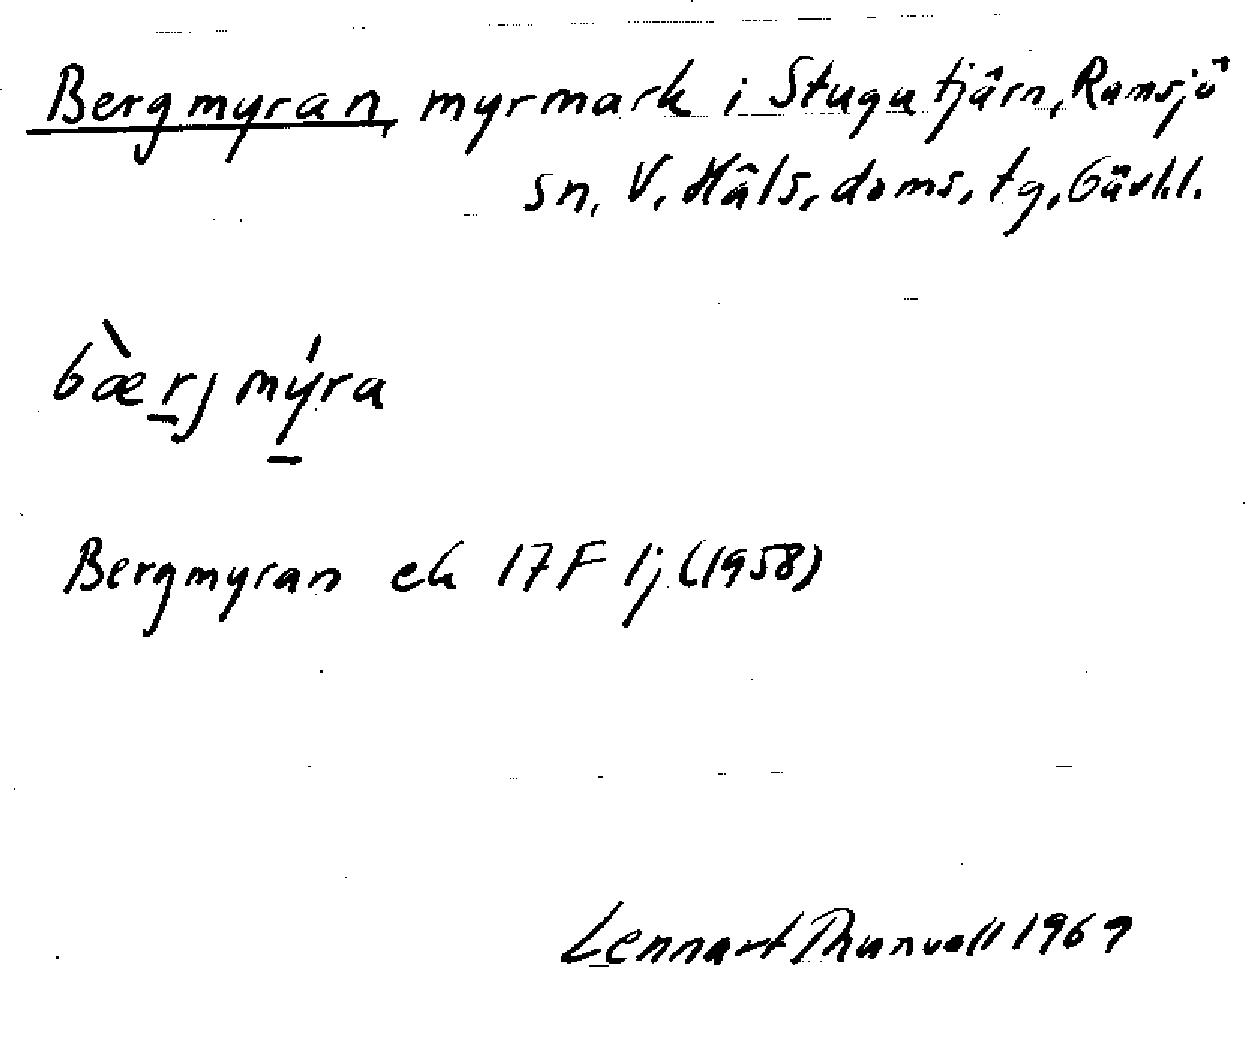 Bergmyran, myrmark i Stugutjärn, Ramsjö
sn, V. Häls, doms, tg, Gävl.l.
bæ̀rj mýra
Bergmyran ek 17F 1j (1958)
Lennart Thunvall 1969